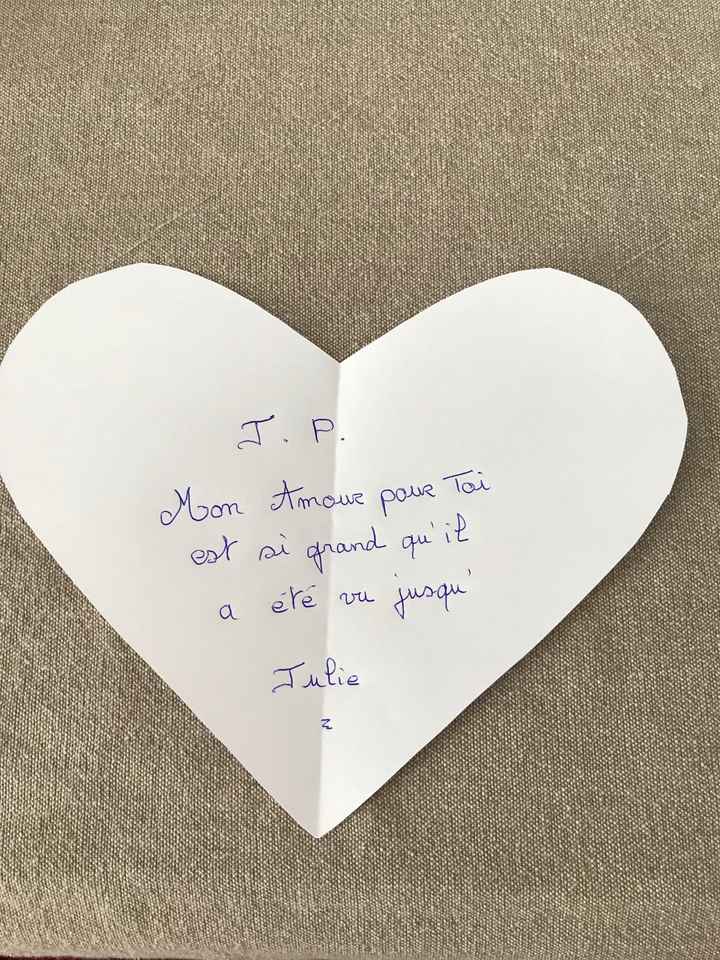 J. P.
Mon Amour pour Toi
est si grand qu'il
a été vu jusqu'
Julie
2